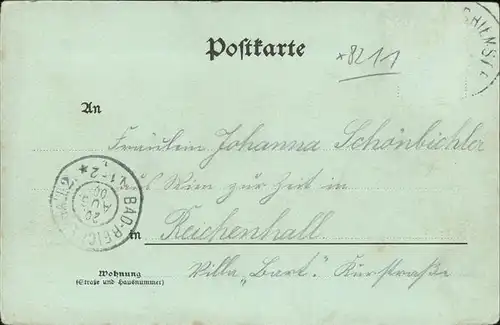 Postkarte
*8211
CHIEMSEE
An
Fräulein Johanna Schönbichler
aus Wien zur Zeit in
in Reichenhall
Villa „Bart". Kurstraße
BAD-REICH
20
AUG
00
Wohnung
(Straße und Hausnummer)